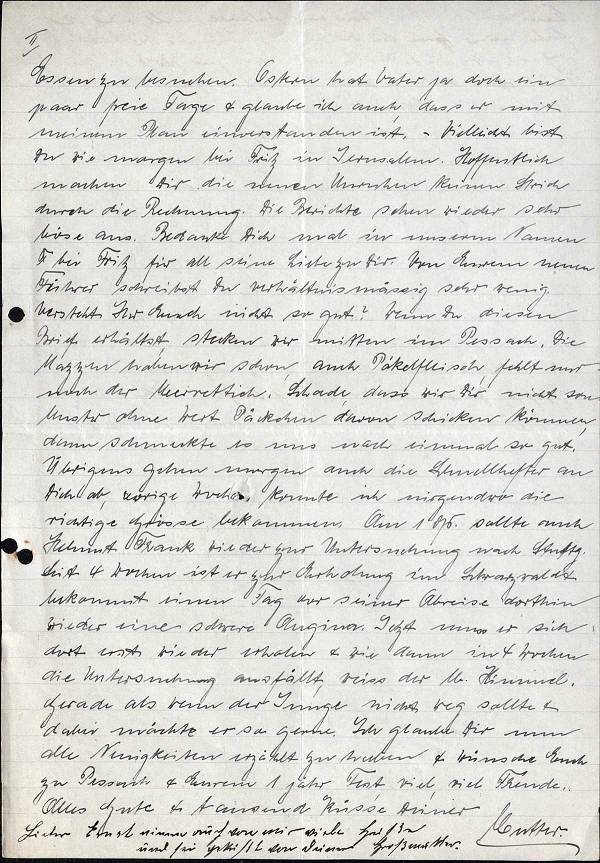 II
Essen zu besuchen. Ostern hat Vater ja doch ein
paar freie Tage & glaube ich auch, dass er mit
meinem Plan einverstanden ist. - Vielleicht bist
Du wie morgen bei Fritz in Jerusalem. Hoffentlich
machen Dir die neuen Unruhen keinen Strich
durch die Rechnung. Die Berichte sehen wieder sehr
böse aus. Bedanke Dich mal in unserm Namen
bei Fritz für all seine Liebe zu Dir. Von Eurem neuen
Führer schreibst Du verhältnismässig sehr wenig.
Versteht Ihr Euch nicht so gut? Wenn Du diesen
Brief erhältst, stecken wir mitten im Pessach. Die
Mazzen haben wir schon, auch Pökelfleisch, fehlt nur
noch der Meerrettich. Schade, dass wir Dir nicht so
Muster ohne Wert Päckchen davon schicken können,
dann schmeckte es uns noch einmal so gut.
Übrigens gehen morgen auch die Schnellhefter an
Dich ab, vorige Woche konnte ich nirgendwo die
richtige Grösse bekommen. Am 1 sollte auch
Helmut Frank wieder zur Untersuchung nach Stuttg.
Seit 4 Wochen ist er zur Erholung im Schwarzwald &
bekommt einen Tag vor seiner Abreise dorthin
wieder eine schwere Angina. Jetzt muss er sich
dort erst wieder erholen & wie dann in 4 Wochen
die Untersuchung ausfällt, weiss der lb. Himmel.
Gerade als wenn der Junge nicht weg sollte &
dabei möchte er so gerne. Ich glaube Dir nun
alle Neuigkeiten erzählt zu haben & wünsche Euch
zu Pessach & Eurem 1 jähr Fest viel, viel Freude.
Alles Gute & tausend Küsse Deiner
Mutter.
Lieber Ernst nimm auch von mir viele Grüße
und sei geküßt von Deiner Großmutter.